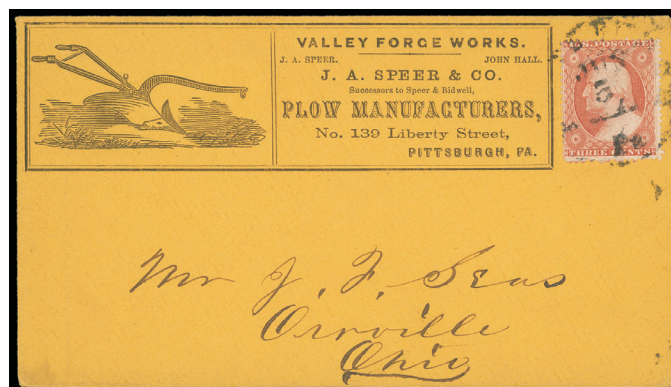 VALLEY FORGE WORKS.
J. A. SPEER. JOHN HALL.
J. A. SPEER & CO.
Successors to Speer & Bidwell,
PLOW MANUFACTURERS,
No. 139 Liberty Street,
PITTSBURGH, PA.
U.S. POSTAGE
THREE CENTS
Mr J. F. Seas
Orrville
Ohio